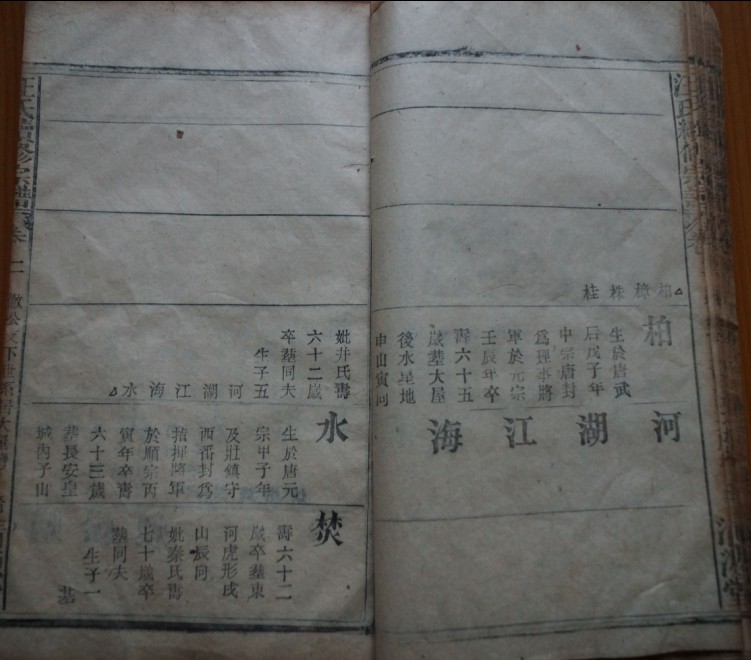 汪氏續修宗譜
柏樟株桂
柏
生於唐武
后戊子年
中宗唐封
爲理事將
軍於元宗
壬辰年卒
壽六十五
歲塟大屋
後水星地
申山寅向
妣井氏壽
六十二歲
卒塟同夫
生子五
河湖江海水
河
湖
江
海
水
生於唐元
宗甲子年
及壯鎮守
西番封爲
指揮將軍
於順宗丙
寅年卒壽
六十三歲
塟長安皇
城內子山
焚
壽六十二
歲卒塟東
河虎形戌
山辰向
妣秦氏壽
七十歲卒
塟同夫
生子一
汪氏續修宗譜
卷二